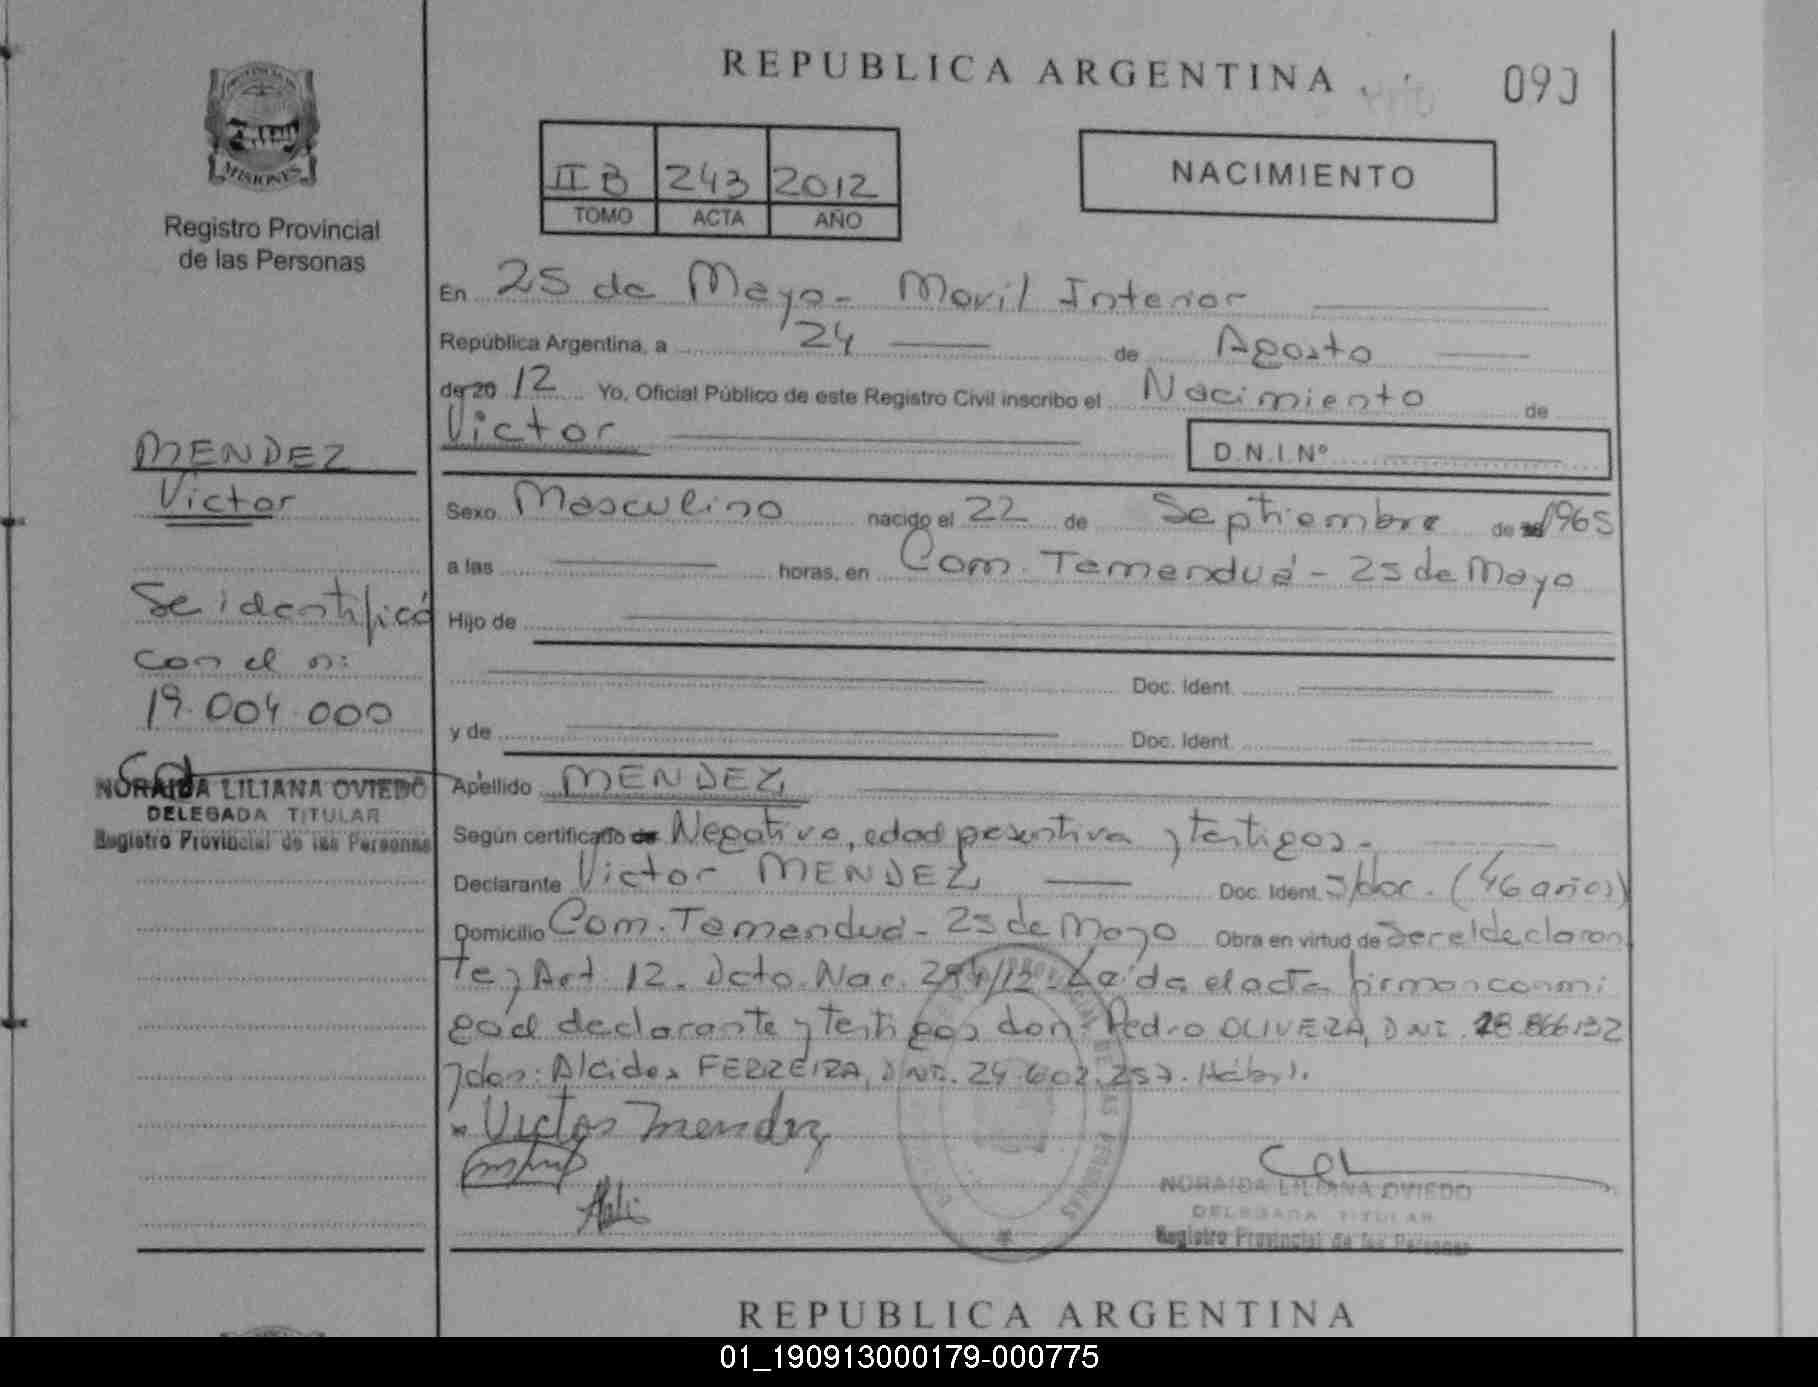 REPUBLICA ARGENTINA
090
MISIONES
Registro Provincial
de las Personas
II B 243 2012
TOMO ACTA AÑO
NACIMIENTO
En 25 de Mayo - Movil Interior
República Argentina, a 24 de Agosto
de 20 12 Yo, Oficial Público de este Registro Civil inscribo el Nacimiento de
Victor
D.N.I.Nº
MENDEZ
Victor
Se identificó
con el n:
19.004.000
NORAIDA LILIANA OVIEDO
DELEGADA TITULAR
Registro Provincial de las Personas
Sexo Masculino nacido el 22 de Septiembre de 1965
a las horas, en Com. Tamanduá - 25 de Mayo
Hijo de
Doc. Ident.
y de Doc. Ident.
Apellido MENDEZ
Según certificado de Negativo, edad presuntiva y testigos.-
Declarante Victor MENDEZ Doc. Ident. s/doc. (46 años)
Domicilio Com. Tamanduá - 25 de Mayo Obra en virtud de ser el declaran
te y Art. 12. Dcto. Nac. Leída el acta firman conmi
go el declarante y testigos don: Pedro OLIVERA, DNI. 28.866.132
y don: Alcides FERREIRA, DNI. 24.602.257. Hábil.
Victor Mendez
NORAIDA LILIANA OVIEDO
DELEGADA TITULAR
Registro Provincial de las Personas
REPUBLICA ARGENTINA
01_190913000179-000775